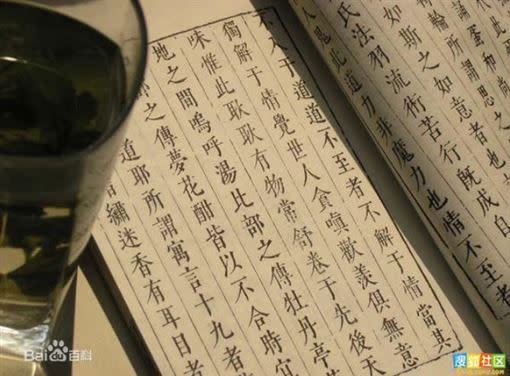 輪所謂思之
如斯之如意者也
氏法羽流術苦行既成自
人鬼此道力非魔力也情不至者
不入于道道不至者不解于情當其
獨解于情覺世人貪嗔歡羨俱無意
味惟此耿耿有物常舒卷于先後天
地之間嗚呼湯比部之傳牡丹亭
部之傳夢花酣皆以不合時宜
道耶所謂寓言十九者
繡迷香有耳目者
Bai百科
搜狐社区